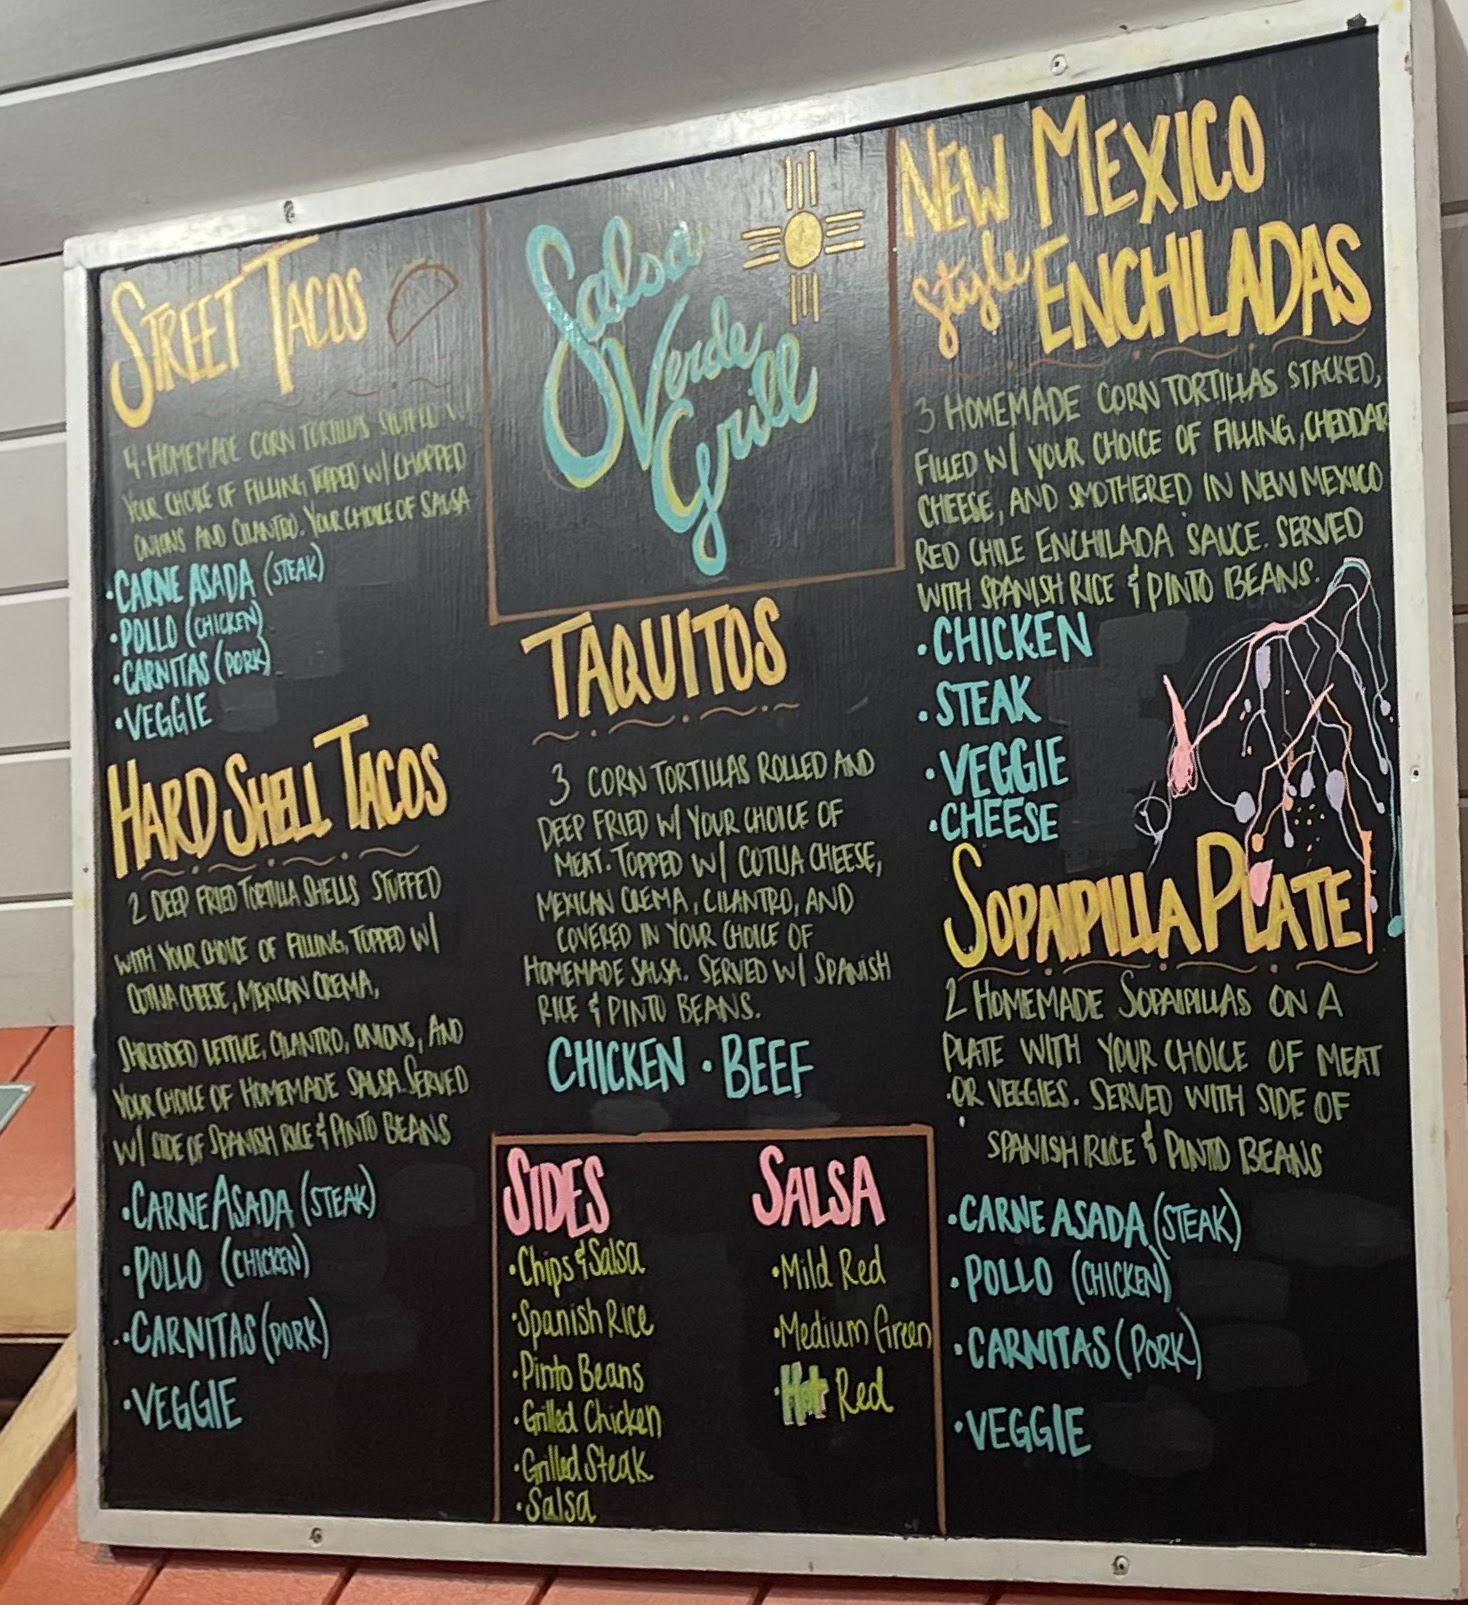 STREET TACOS
4-HOMEMADE CORN TORTILLAS STUFFED W/
YOUR CHOICE OF FILLING, TOPPED W/ CHOPPED
ONIONS AND CILANTRO. YOUR CHOICE OF SALSA
·CARNE ASADA (STEAK)
·POLLO (CHICKEN)
·CARNITAS (PORK)
·VEGGIE
HARD SHELL TACOS
2 DEEP FRIED TORTILLA SHELLS STUFFED
WITH YOUR CHOICE OF FILLING, TOPPED W/
COTIJA CHEESE, MEXICAN CREMA,
SHREDDED LETTUCE, CILANTRO, ONIONS, AND
YOUR CHOICE OF HOMEMADE SALSA. SERVED
W/ SIDE OF SPANISH RICE & PINTO BEANS
·CARNE ASADA (STEAK)
·POLLO (CHICKEN)
·CARNITAS (PORK)
·VEGGIE
Salsa
Verde
Grill
TAQUITOS
3 CORN TORTILLAS ROLLED AND
DEEP FRIED W/ YOUR CHOICE OF
MEAT. TOPPED W/ COTIJA CHEESE,
MEXICAN CREMA, CILANTRO, AND
COVERED IN YOUR CHOICE OF
HOMEMADE SALSA. SERVED W/ SPANISH
RICE & PINTO BEANS.
CHICKEN · BEEF
SIDES
·Chips & Salsa
·Spanish Rice
·Pinto Beans
·Grilled Chicken
·Grilled Steak
·Salsa
SALSA
·Mild Red
·Medium Green
·Hot Red
NEW MEXICO
Style ENCHILADAS
3 HOMEMADE CORN TORTILLAS STACKED,
FILLED W/ YOUR CHOICE OF FILLING, CHEDDAR
CHEESE, AND SMOTHERED IN NEW MEXICO
RED CHILE ENCHILADA SAUCE. SERVED
WITH SPANISH RICE & PINTO BEANS.
·CHICKEN
·STEAK
·VEGGIE
·CHEESE
SOPAIPILLA PLATE
2 HOMEMADE SOPAIPILLAS ON A
PLATE WITH YOUR CHOICE OF MEAT
OR VEGGIES. SERVED WITH SIDE OF
SPANISH RICE & PINTO BEANS
·CARNE ASADA (STEAK)
·POLLO (CHICKEN)
·CARNITAS (PORK)
·VEGGIE